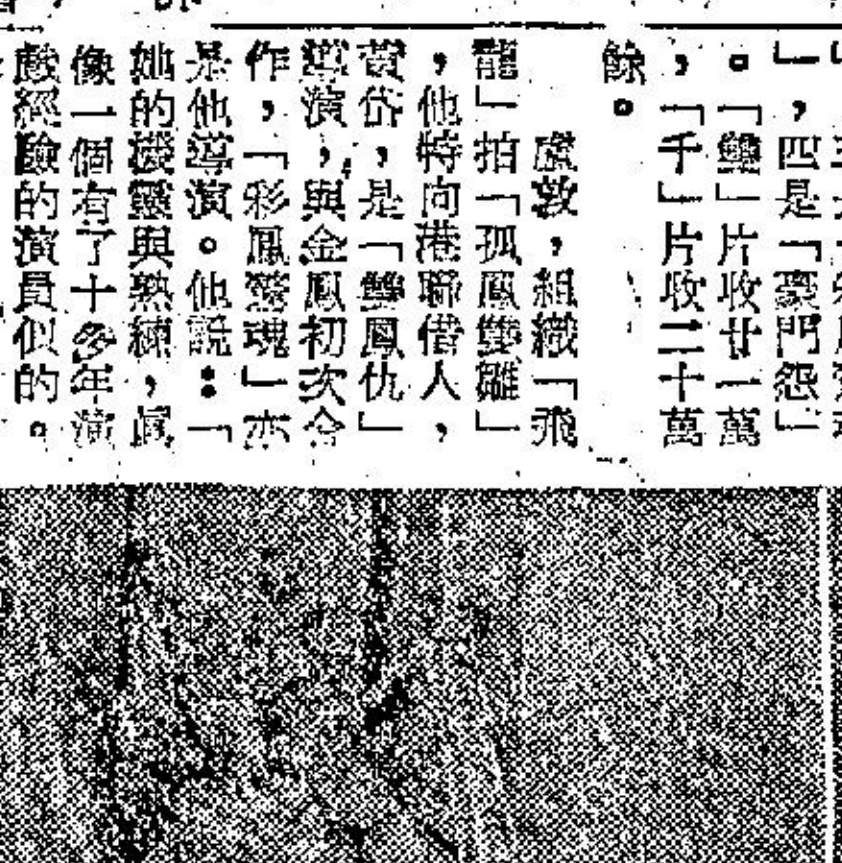 」，四是「豪門怨」
。「雙」片收廿一萬
，「千」片收二十萬
餘。
盧敦，組織「飛
龍」拍「孤鳳雙雛」
，他特向港聯借人，
黃岱，是「雙鳳仇」
導演，與金鳳初次合
作，「彩鳳驚魂」亦
是他導演。他說：「
她的機靈與熟練，眞
像一個有了十多年演
戲經驗的演員似的。